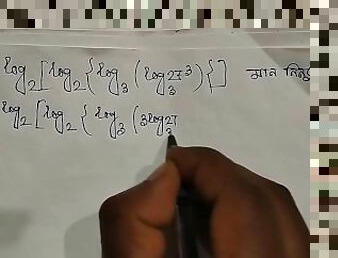 log₂[log₂{log₃(log₃27³)}] মান নির্ণ
log₂[log₂{log₃(3log₃27